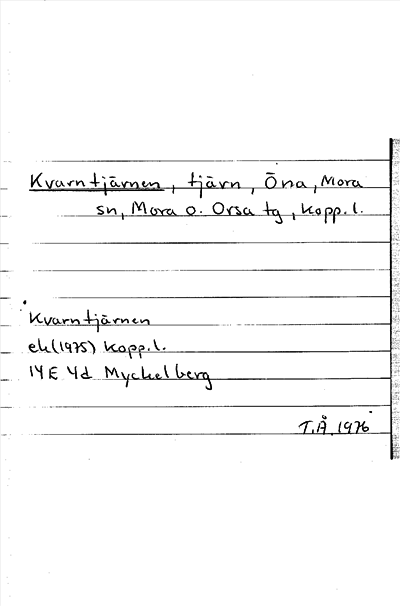 Kvarntjärnen, tjärn, Öna, Mora
sn, Mora o. Orsa tg, Kopp. l.
Kvarntjärnen
ek (1975) Kopp. l.
14E 4d Myckelberg
T.Å. 1976